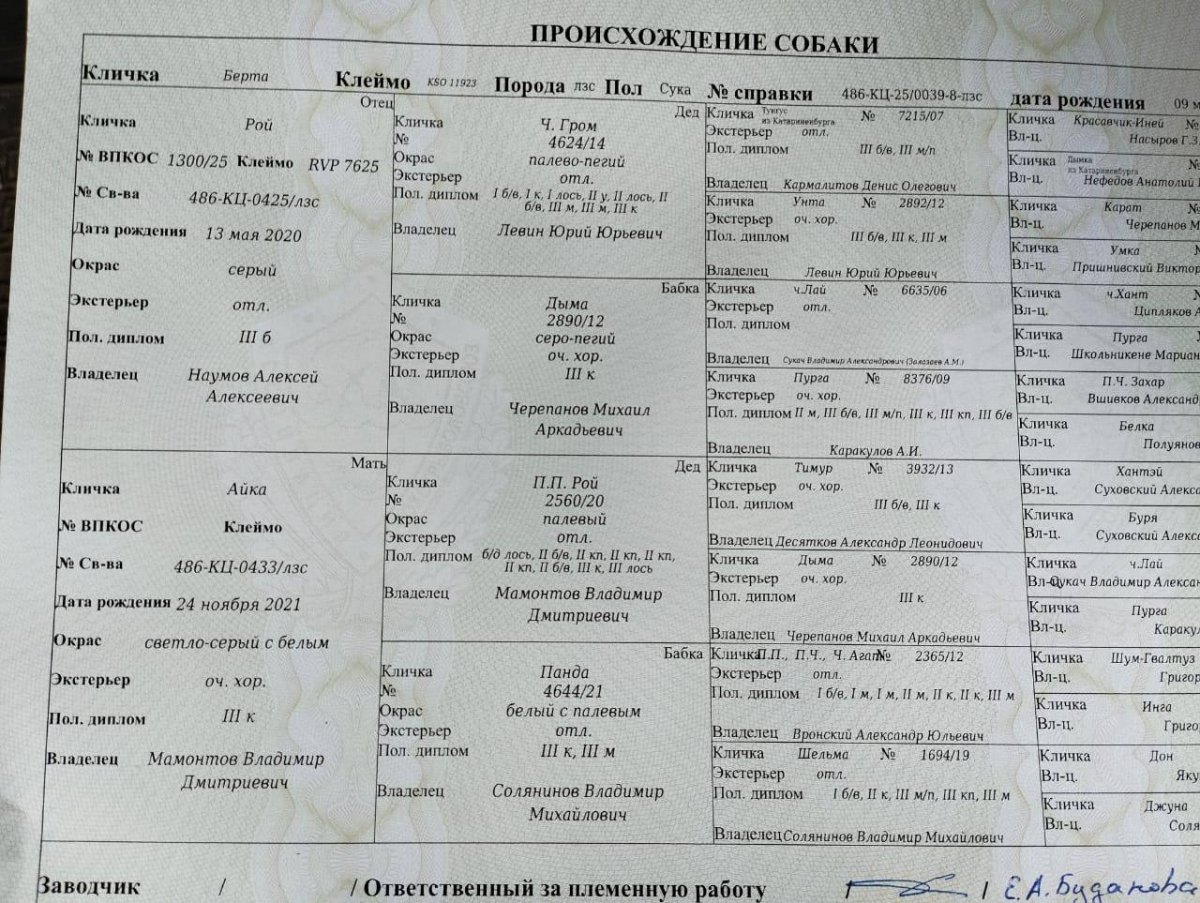 ПРОИСХОЖДЕНИЕ СОБАКИ
Кличка Берта Клеймо KSO 11923 Порода лзс Пол Сука № справки 486-КЦ-25/0039-8-лзс дата рождения 09
Отец
Кличка Рой
№ ВПКОС 1300/25 Клеймо RVP 7625
№ Св-ва 486-КЦ-0425/лзс
Дата рождения 13 мая 2020
Окрас серый
Экстерьер отл.
Пол. диплом III б
Владелец Наумов Алексей
Алексеевич
Мать
Кличка Айка
№ ВПКОС Клеймо
№ Св-ва 486-КЦ-0433/лзс
Дата рождения 24 ноября 2021
Окрас светло-серый с белым
Экстерьер оч. хор.
Пол. диплом III к
Владелец Мамонтов Владимир
Дмитриевич
Дед
Кличка Ч. Гром
№ 4624/14
Окрас палево-пегий
Экстерьер отл.
Пол. диплом I б/в, I к, I лось, II у, II лось, II
б/в, III м, III м, III к
Владелец Левин Юрий Юрьевич
Бабка
Кличка Дыма
№ 2890/12
Окрас серо-пегий
Экстерьер оч. хор.
Пол. диплом III к
Владелец Черепанов Михаил
Аркадьевич
Дед
Кличка П.П. Рой
№ 2560/20
Окрас палевый
Экстерьер отл.
Пол. диплом б/д лось, II б/в, II кп, II кп, II кп,
II кп, II б/в, III к, III лось
Владелец Мамонтов Владимир
Дмитриевич
Бабка
Кличка Панда
№ 4644/21
Окрас белый с палевым
Экстерьер отл.
Пол. диплом III к, III м
Владелец Солянинов Владимир
Михайлович
Кличка Тунгус из Катариненбурга № 7215/07
Экстерьер отл.
Пол. диплом III б/в, III м/п
Владелец Кармалитов Денис Олегович
Кличка Унта № 2892/12
Экстерьер оч. хор.
Пол. диплом III б/в, III к, III м
Владелец Левин Юрий Юрьевич
Кличка ч.Лай № 6635/06
Экстерьер отл.
Пол. диплом
Владелец Сукач Владимир Александрович (Залазаев А.М.)
Кличка Пурга № 8376/09
Экстерьер оч. хор.
Пол. диплом II м, III б/в, III м/п, III к, III кп, III б/в
Владелец Каракулов А.И.
Кличка Тимур № 3932/13
Экстерьер оч. хор.
Пол. диплом III б/в, III к
Владелец Десятков Александр Леонидович
Кличка Дыма № 2890/12
Экстерьер оч. хор.
Пол. диплом III к
Владелец Черепанов Михаил Аркадьевич
Кличка П.П., П.Ч., Ч. Агат № 2365/12
Экстерьер отл.
Пол. диплом I б/в, I м, I м, II м, II к, II к, III м
Владелец Вронский Александр Юльевич
Кличка Шельма № 1694/19
Экстерьер отл.
Пол. диплом I б/в, II к, III м/п, III кп, III м
Владелец Солянинов Владимир Михайлович
Кличка Красавчик-Иней №
Вл-ц. Насыров Г.З.
Кличка Дымка из Катариненбурга №
Вл-ц. Нефедов Анатолий
Кличка Карат №
Вл-ц. Черепанов М
Кличка Умка
Вл-ц. Пришнивский Виктор
Кличка ч.Хант
Вл-ц. Ципляков А
Кличка Пурга
Вл-ц. Школьникене Мариан
Кличка П.Ч. Захар
Вл-ц. Вшивков Александ
Кличка Белка
Вл-ц. Полуянов
Кличка Хантэй
Вл-ц. Суховский Алекса
Кличка Буря
Вл-ц. Суховский Алекс
Кличка ч.Лай
Вл-ц. Сукач Владимир Алексан
Кличка Пурга
Вл-ц. Каракул
Кличка Шум-Гвалтуз
Вл-ц. Григор
Кличка Инга
Вл-ц. Григо
Кличка Дон
Вл-ц. Яку
Кличка Джуна
Вл-ц. Соля
Заводчик / / Ответственный за племенную работу / / Е.А.Буданова